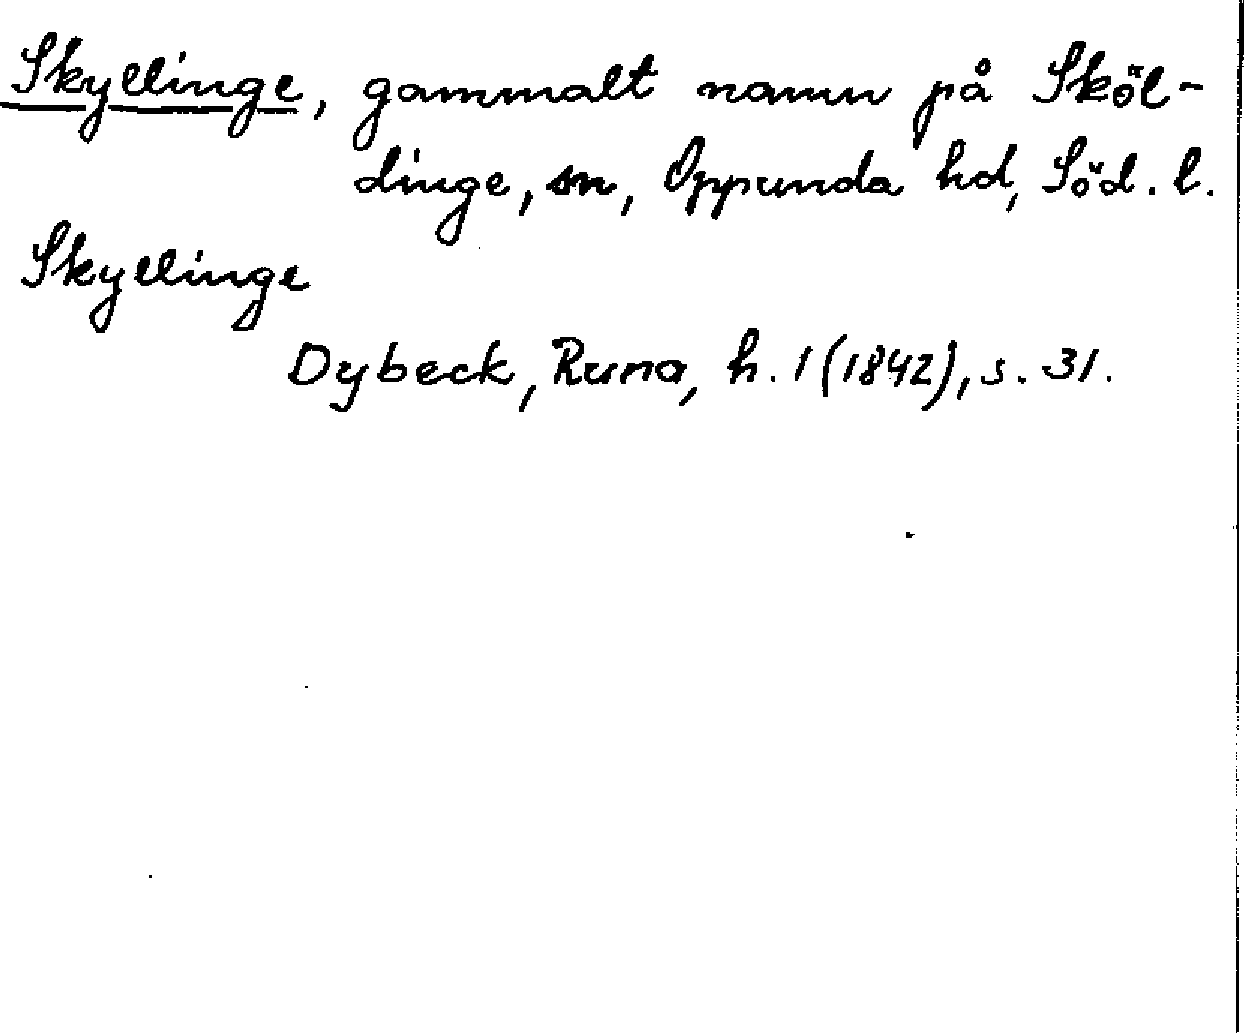 Skyllinge, gammalt namn på Sköl-
dinge, sn, Oppunda hd, Söd. l.
Skyllinge
Dybeck, Runa, h. 1 (1842), s. 31.